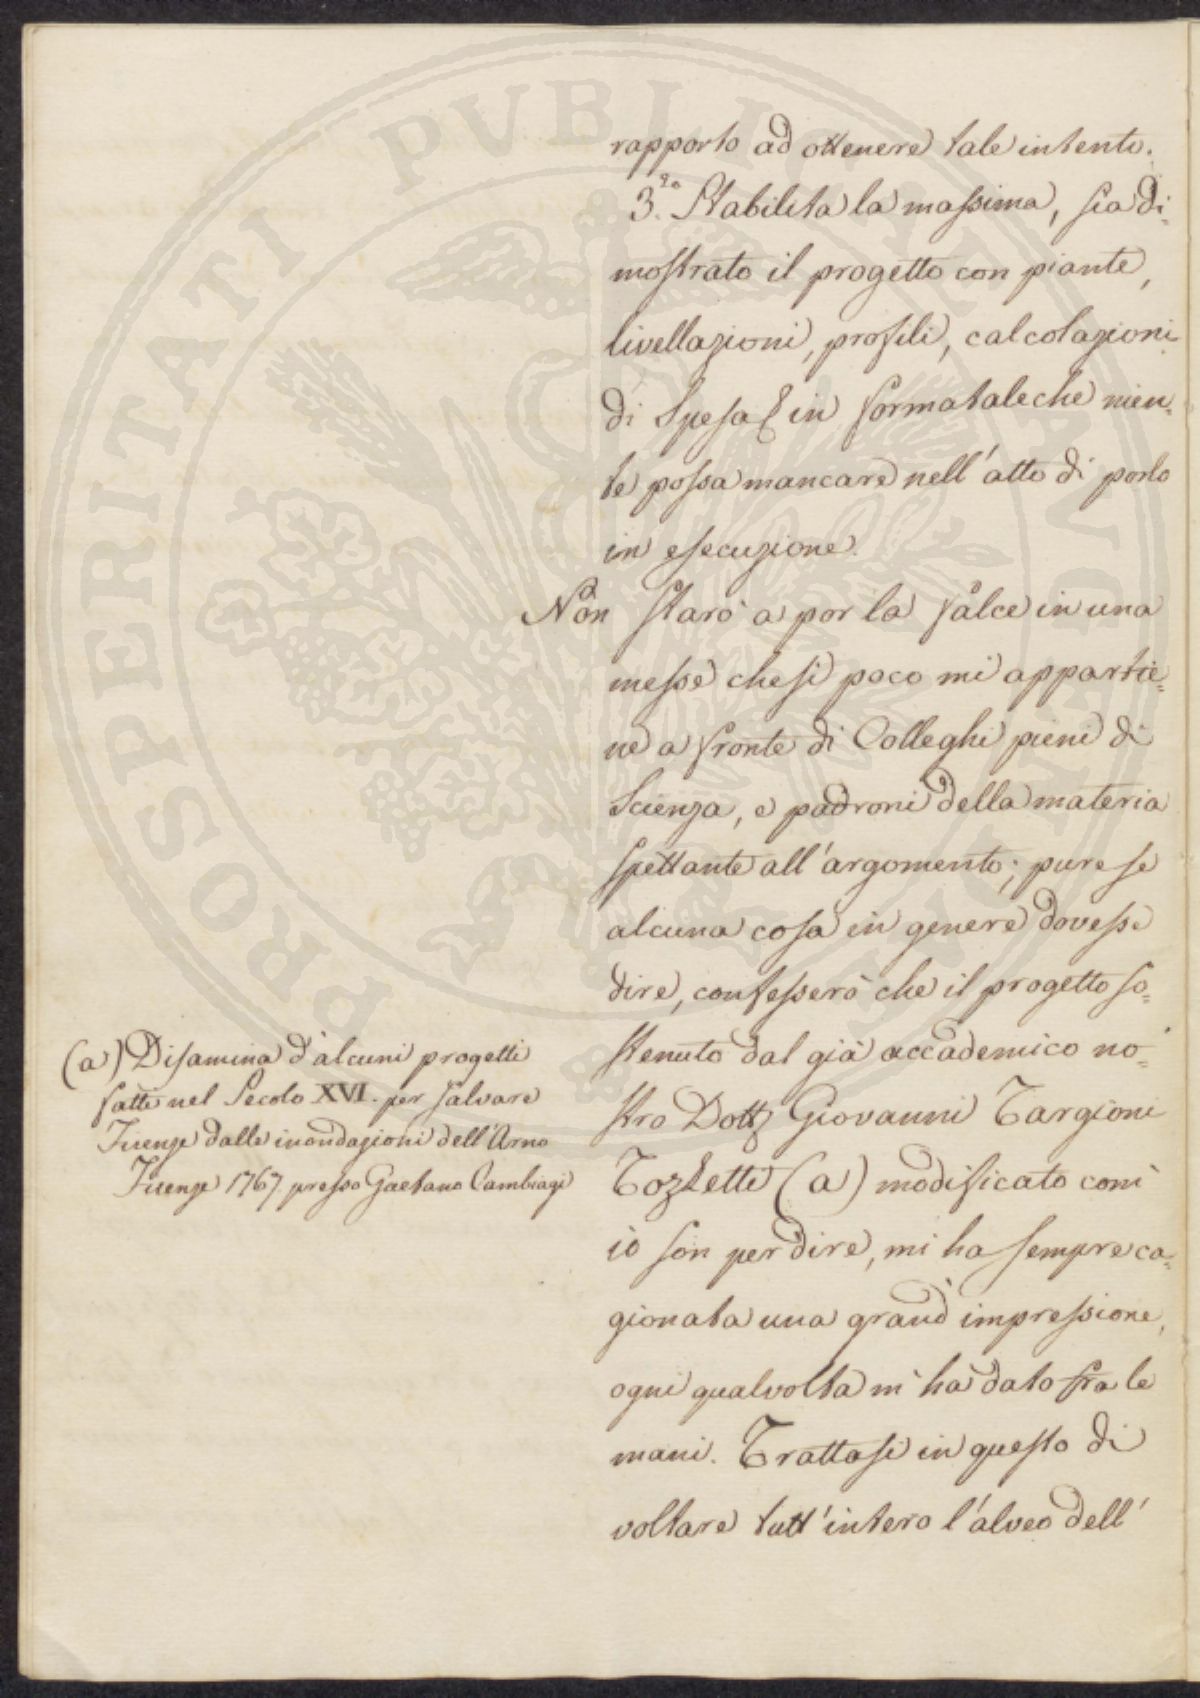 rapporto ad ottenere tale intento.
3.zo Stabilita la massima, sia di=
mostrato il progetto con piante,
livellazioni, profili, calcolazioni
di Spesa & in forma tale che nien=
te possa mancare nell'atto di porlo
in esecuzione.
Non starò a por la falce in una
messe che sì poco mi appartie=
ne a fronte di Colleghi pieni di
Scienza, e padroni della materia
spettante all'argomento; pure se
alcuna cosa in genere dovesse
dire, confesserò che il progetto so=
stenuto dal già accademico no=
stro Dott. Giovanni Targioni
Tozzetti (a) modificato com'
io son per dire, mi ha sempre ca=
gionata una grand' impressione,
ogni qualvolta m' ha dato fra le
mani. Trattasi in questo di
voltare tutt' intero l'alveo dell'
(a) Disamina d'alcuni progetti
fatti nel Secolo XVI. per salvare
Firenze dalle inondazioni dell'Arno
Firenze 1767. presso Gaetano Cambiagi
PROSPERITATI PUBLICAE AUGENDAE